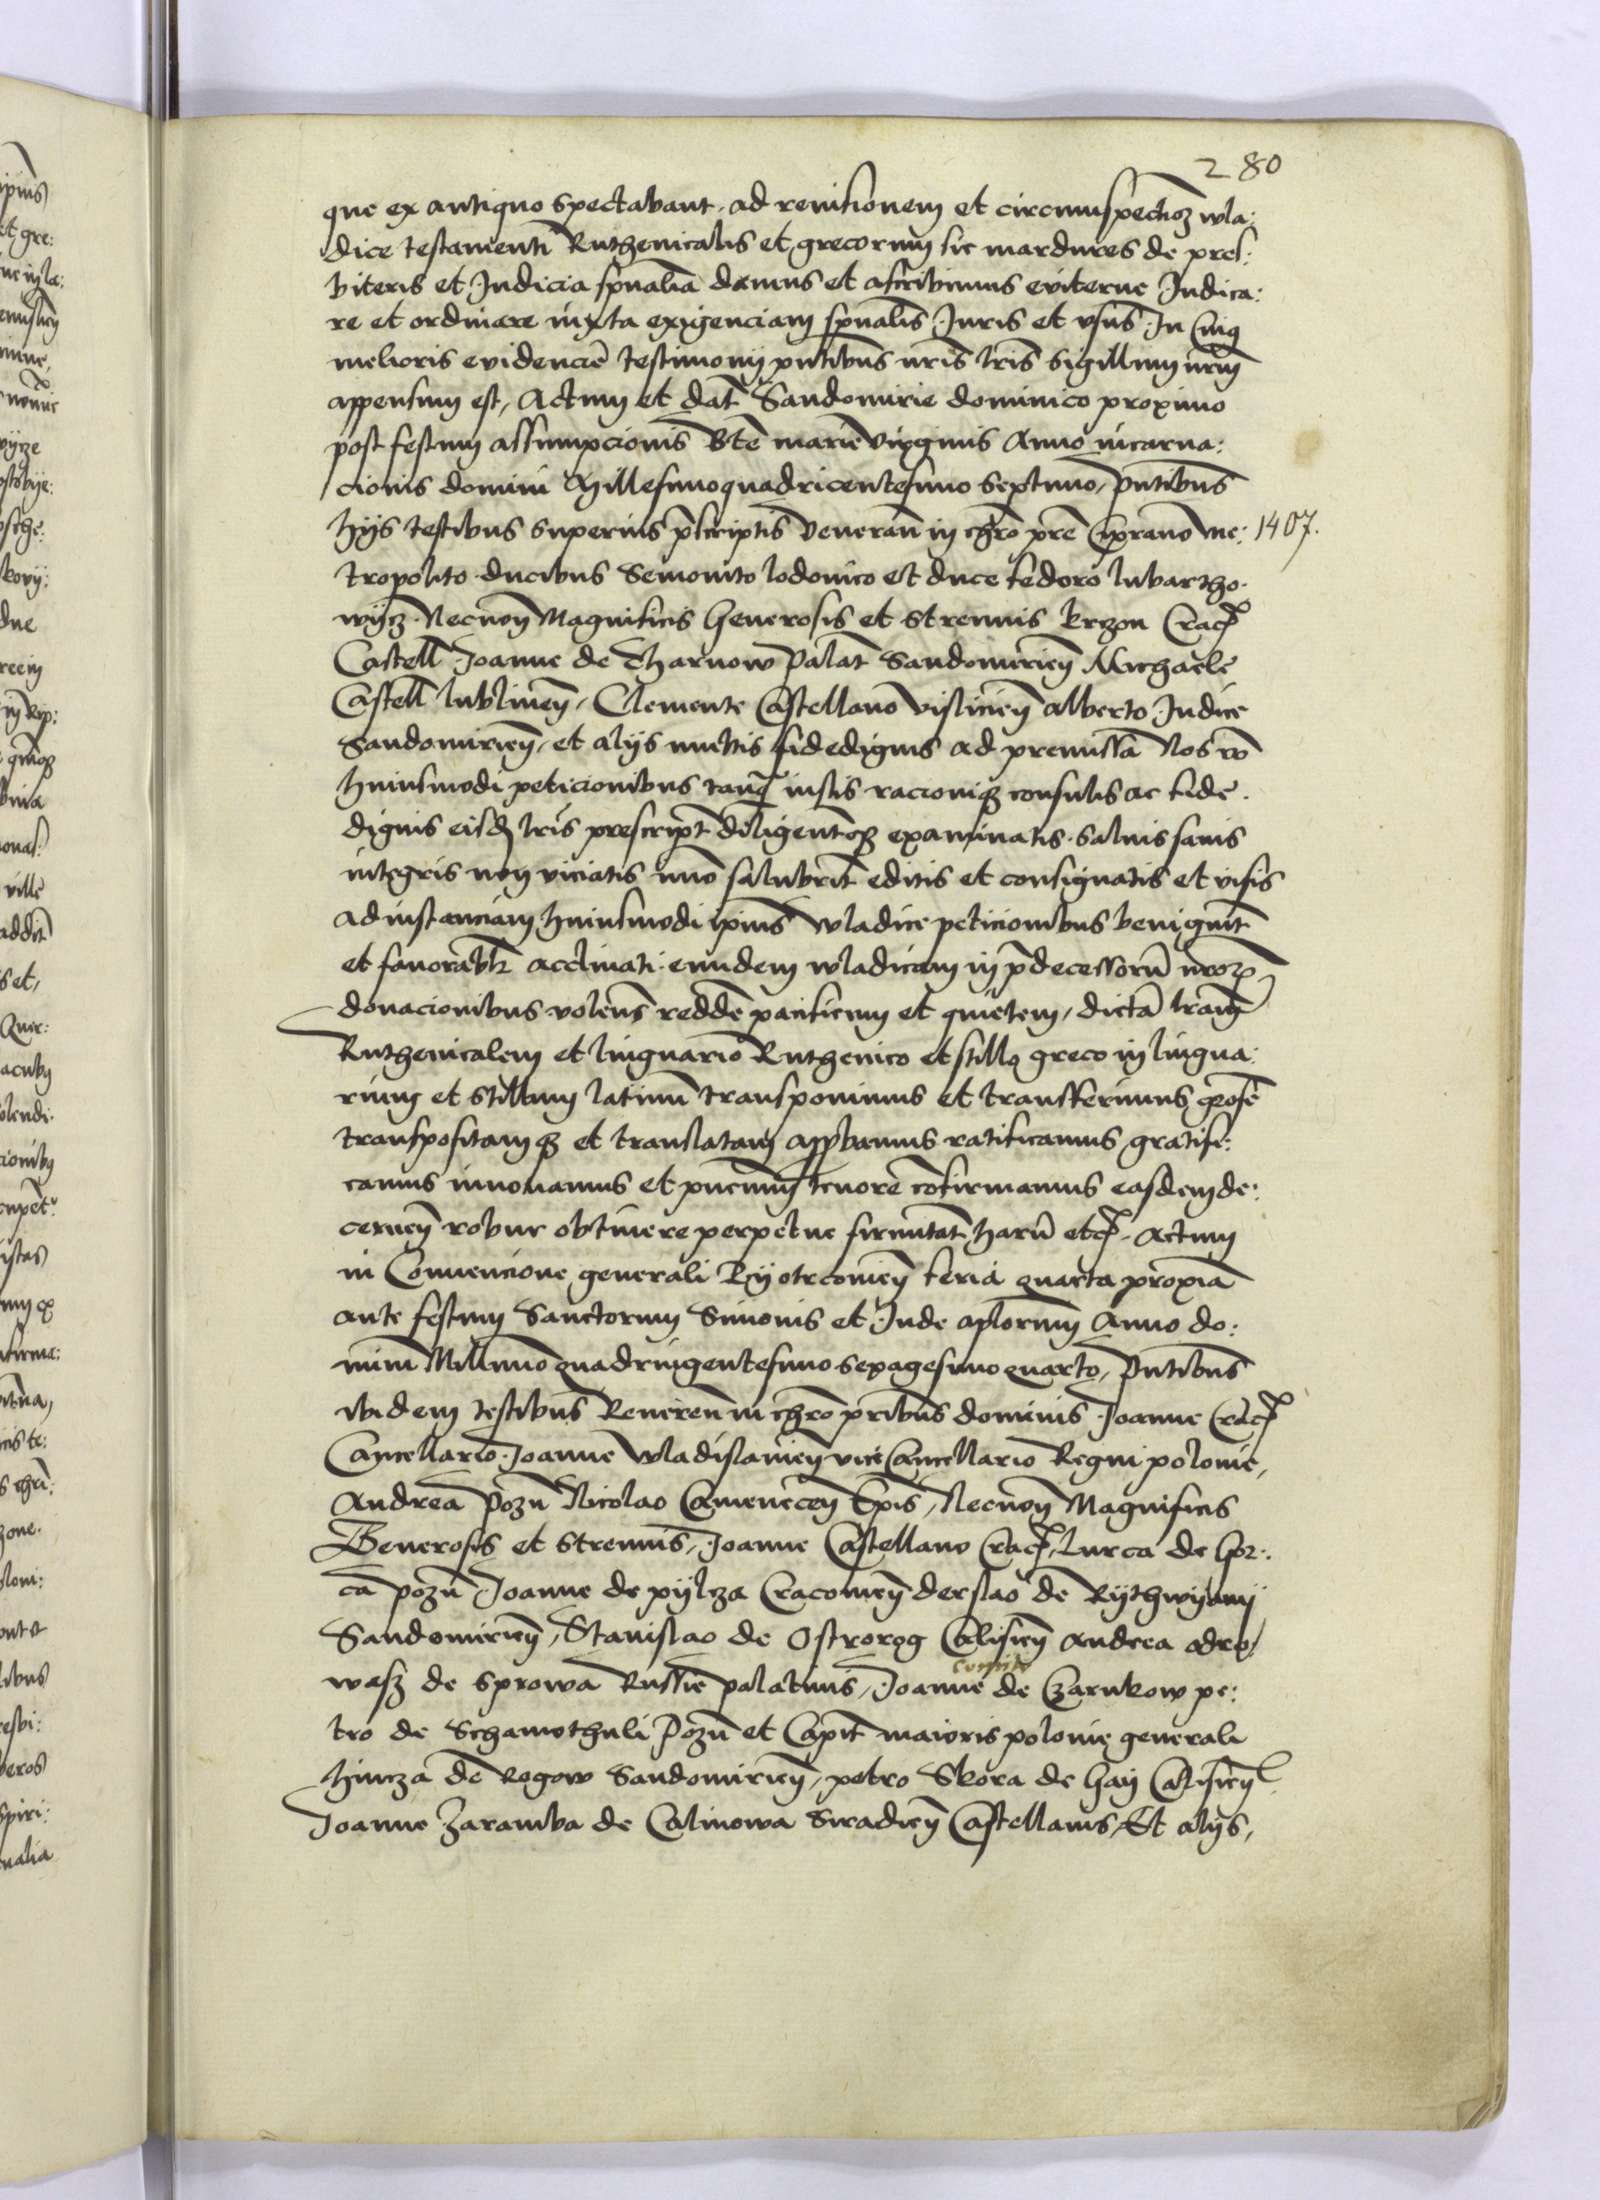 280
que ex antiquo spectabant ad reuisionem et circumspectioꝫ wla:
dice testamenti Ruthenicalis et grecorum sic mardures de pres:
biteris et Judicia spũalia damus et ascribimus eviterne Judica:
re et ordinare iuxta exigenciam spũalis Juris et usus Jn Cuiꝯ
melioris evidencie testimonij pñtibus nris lris sigillum nrm
appensum est, Actum et dat Sandomirie dominico proximo
post festum assumpcionis Bte marie virginis Anno incarna:
cionis domini Millesimoquadricentesimo septimo, pñtibus
hijs testibus superius pscriptis veneran in chro pre Ciprano me: 1407.
tropolito ducibus Semouito lodouico et duce fedoro lubartho
wijcz Necnon Magnificis Generosis et strennuis Krczon Crac
Castell Joanne de Tharnow palat Sandomirien Michaele
Castell lublinen, Clemente Castellano vislicien alberto Judice
Sandomirien, et alijs multis fidedignis ad premissa Nos vo
huiusmodi peticionibus tanq iustis racioniqꝫ consulis ac fide
dignis eisd lris prescript diligentqꝫ examinatis saluis sanis
integris non viciatis immo salubrit editis et consignatis et visis
ad instanciam huiusmodi ipius wladice peticionibus benignit
et fauorabl acclinati eundem wladicam in pdecessoru nroꝝ
donacionibus volens redde pacificum et quietem, dicta lram
Ruthenicalem et linguario Ruthenico et stillo greco in lingua
rium et stillum latinu transponimus et transferimus
transpositamqꝫ et translatam appbamus ratificamus gratifi:
camus innouamus et pñcium tenore cofirmamus easdem de:
cernen robur obtinere perpetue firmitat haru etc Actum
in Conuencione generali Pijotrcouien feria quarta proxia
ante festum Sanctorum Simonis et Jude aplorum Anno do:
mini Millimo quadringentesimo sexagesimo quarto, pñtibus
ibidem testibus Reueren in chro pribus dominis Joanne Crac
Cancellario Joanne wladislauien vice Cancellario Regni polonie,
Andrea pozn Nicolao Camenecen Epis, Necnon Magnificis
Generosis et strennuis, Joanne Castellano Crac, Lurca de Gor:
ca pozn Joanne de pijlcza Cracouien derslao de Rijthwijanij
Sandomirien, Stanislao de Ostrorog Calisien Andrea odro
wasz de Sprowa Russie palatinis, Joanne de Czarnkow pe:
tro de Schamothuli Pozn et Capit maioris polonie generali
hincza de Rogow Sandomirien, petro Skora de Gaij Calisien
Joanne Zaramba de Calinowa Siradien Castellanis, Et alijs,